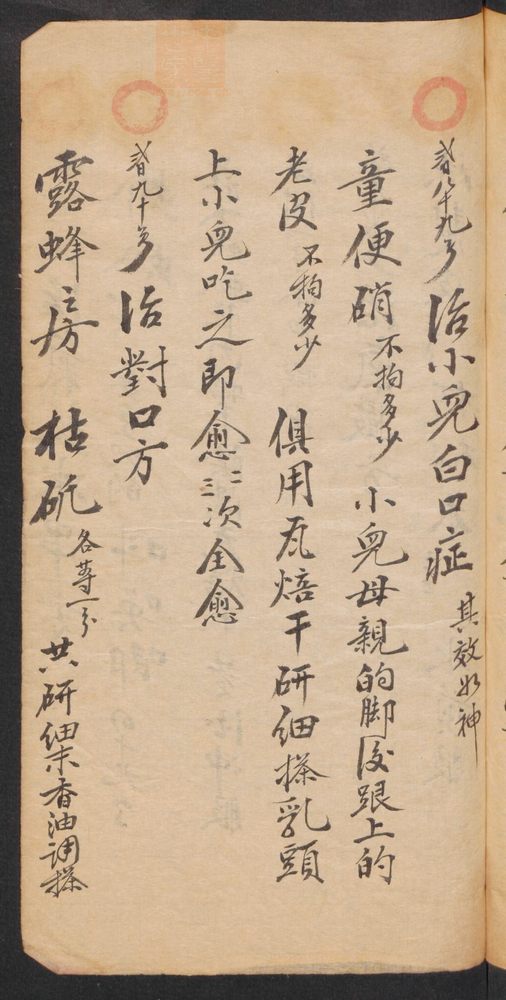 貳八十九号 治小兒白口症 其效如神
童便硝 不拘多少 小兒母親的脚后跟上的
老皮 不拘多少 俱用瓦焙干研細搽乳頭
上小兒吃之即愈二三次全愈
貳九十号 治對口方
露蜂房 枯矾 各等一分 共研細末香油调搽